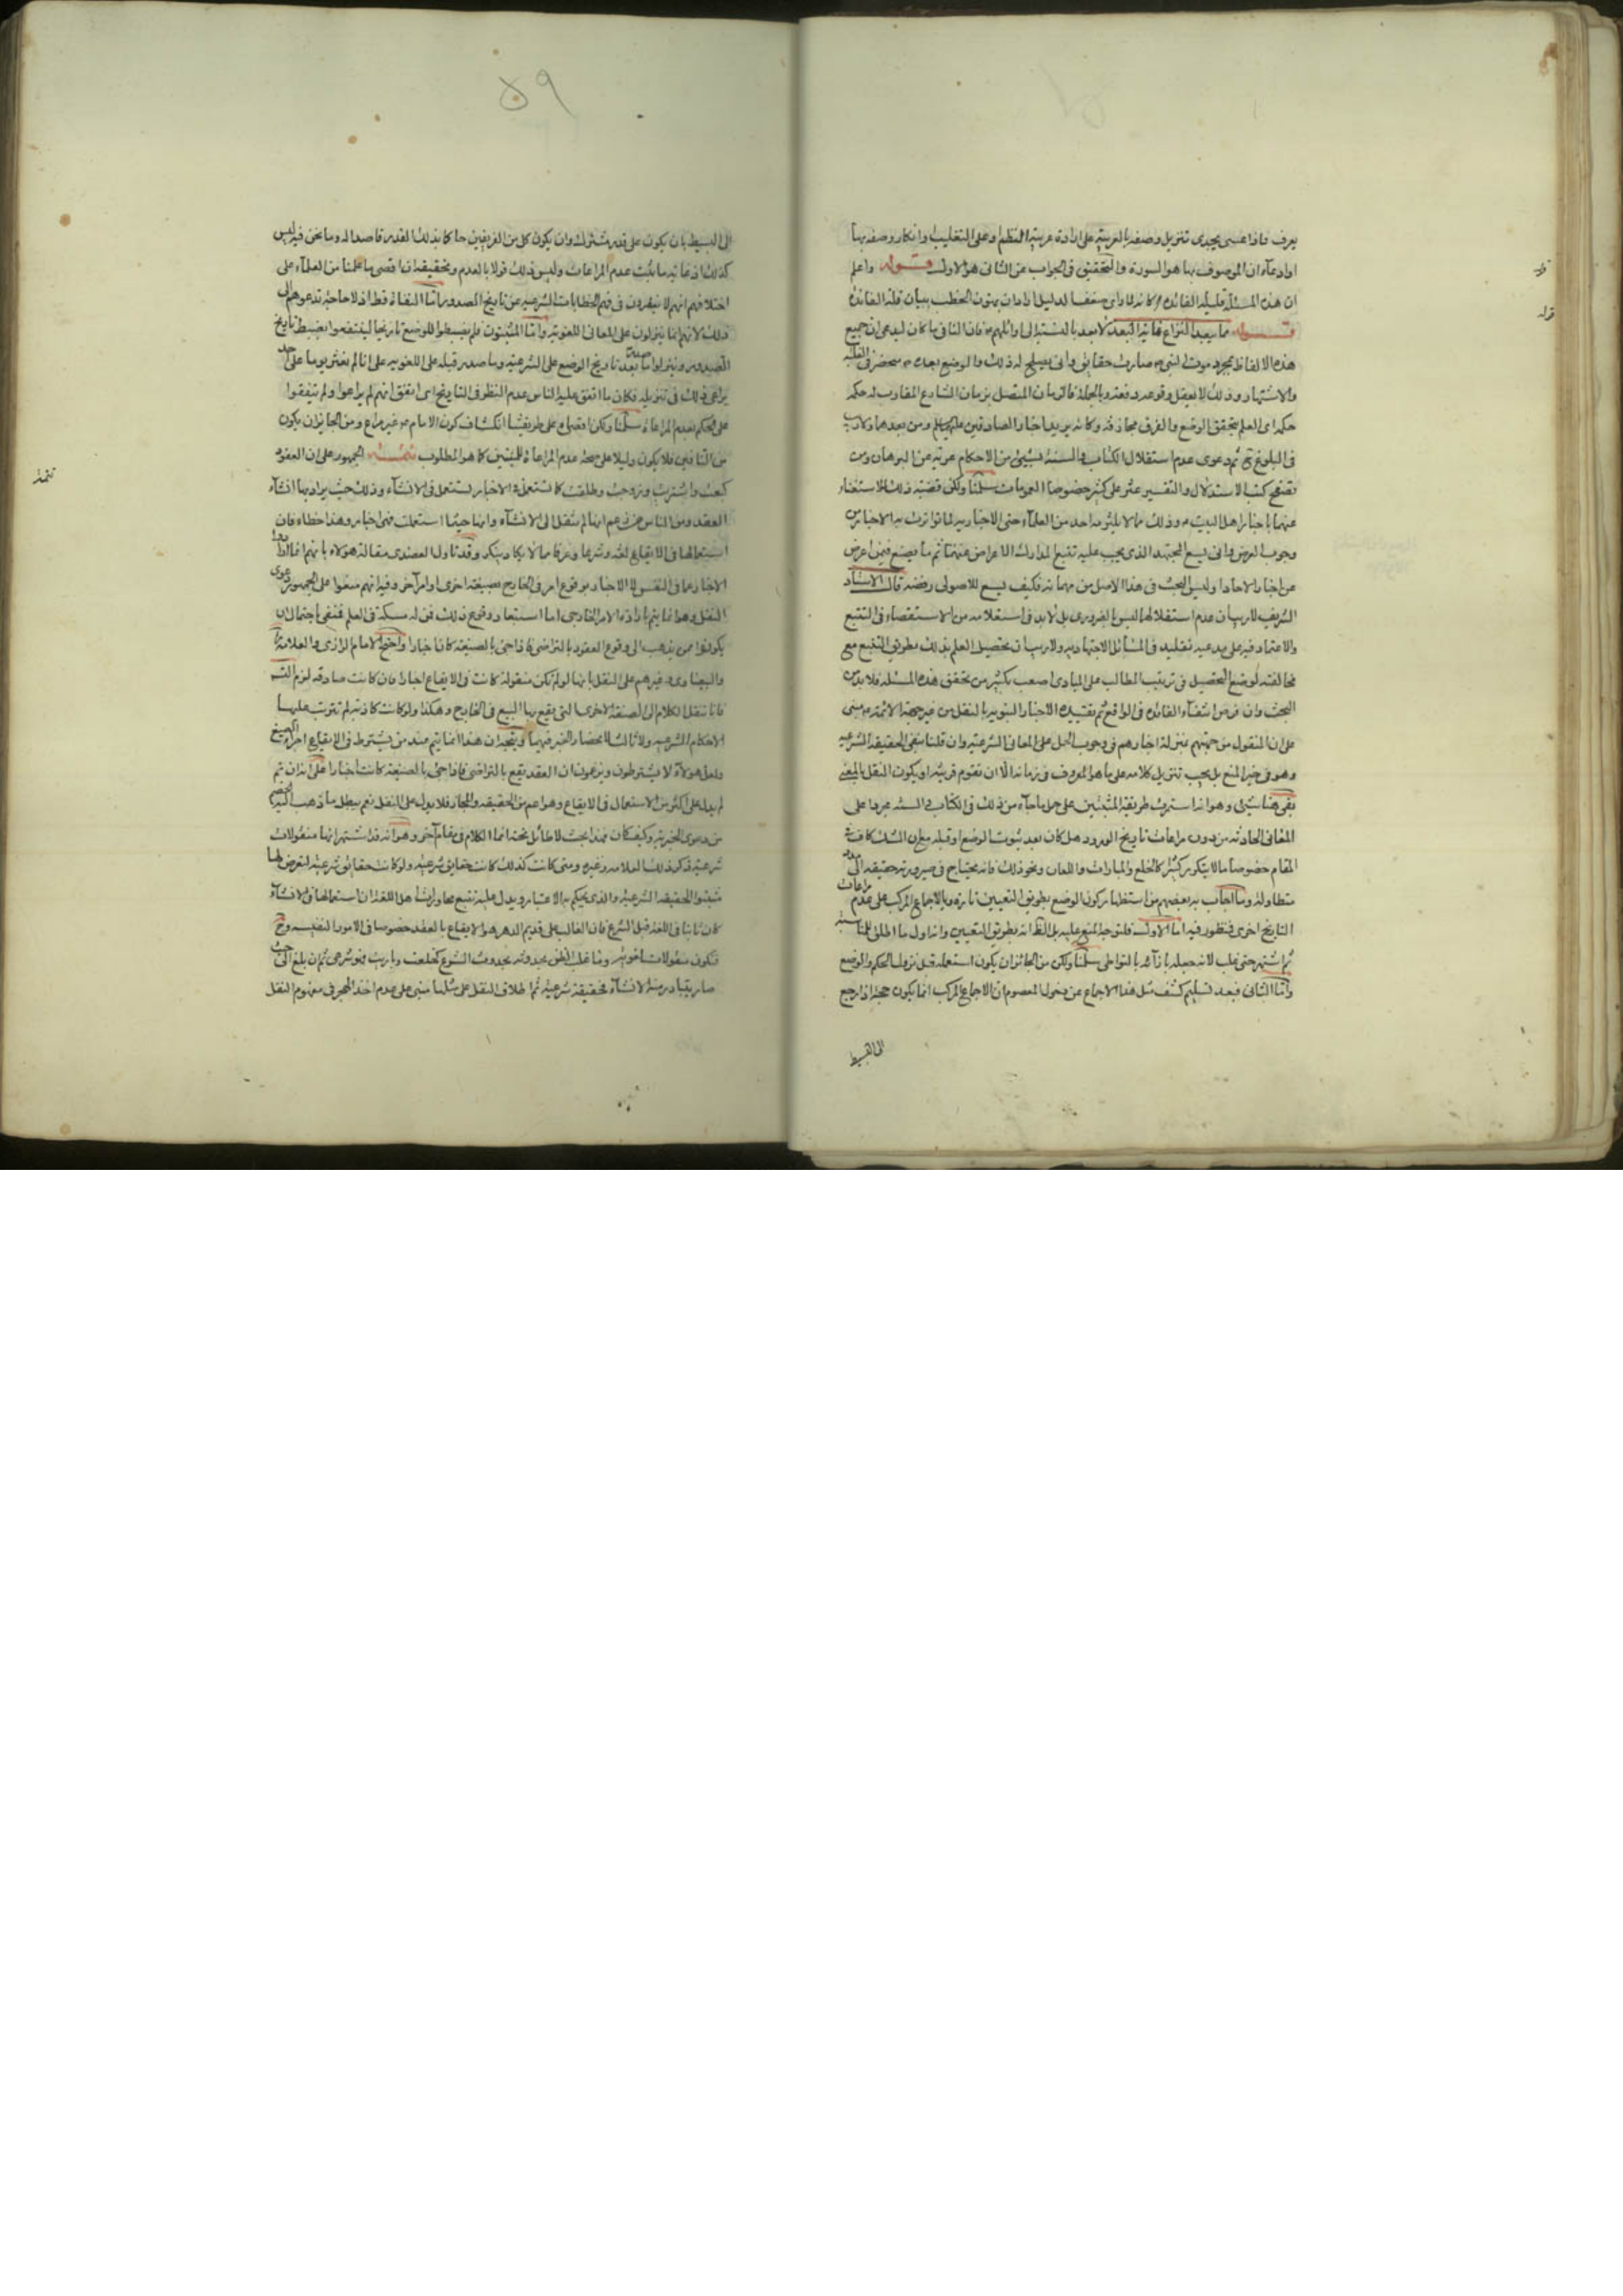 يعرف فاذا عسى يجدى تنزيل وصفه بالعربية على ارادة عربية النظم او على التغليب او انكار وصفه بها
او ادعاء ان الموصوف بها هو السورة والتحقيق فى الجواب عن الثانى هو الاول قوله واعلم
ان هذه المسئلة قليلة الفائدة كانه لما راى ضعف الدليل اراد ان يهون الخطب ببيان قلة الفائدة
قوله مما يبعد النزاع فانه البعد لا بعد بالنسبة الى اوائلهم فان النافى ما كان ليدعى ان جميع
هذه الالفاظ بمجرد موت النبى صارت حقائق وانى يصلح له ذلك والوضع بعده منحصر فى الغلبة
والاشتهار وذلك لا يعقل وقوعه دفعة وبالجملة فالزمان المتصل بزمان الشارع المقارب له حكمه
حكمه اى العلم بتحقق الوضع والفرق مجازفة وكانه يريد اخبار الصادقين عليهم السلم ومن بعدها ولا ريب
فى البلوغ ح ثم دعوى عدم استقلال الكتاب والسنة بشيئ من الاحكام عرية عن البرهان ومن
تصفح كتب الاستدلال والتفسير عثر على كثير خصوصا العمومات سلمنا ولكن قضية ذلك الاستغناء
عنهما باخبار اهل البيت وذلك مما لا يلتزمه احد من العلماء حتى الاخبارية لما تواترت به الاخبار من
وجوب العرض وانى يسع المجتهد الذى يجب عليه تتبع المدارك الاعراض عنهما ثم ما يصنع فيمن اعرض
عن اخبار الاحاد وليس البحث فى هذا الاصل من مهماته فكيف يسع للاصولى رفضه قال الاستاد
الشريف لا ريب ان عدم استقلالهما ليس بالضرورى بل لا بد فى استعلامه من الاستقصاء فى التتبع
والاعتماد فيه على مدعيه تقليد فى المسائل الاجتهادية ولا ريب ان تحصيل العلم بذلك بطريق التتبع مع
مخالفته لوضع التحصيل فى ترتيب المطالب على المبادى اصعب بكثير من تحقيق هذه المسئلة فلا بد من
البحث وان فرض انتفاء الفائدة فى الواقع ثم تقييده الاخبار النبوية بالنقل من غير جهة الائمة مبنى
على ان المنقول من جهتهم بمنزلة اخبارهم فى وجوب الحمل على المعانى الشرعية وان قلنا بنفى الحقيقة الشرعية
وهو فى حيز المنع بل يجب تنزيل كلامه على ما هو المعروف فى زمانه الا ان تقوم قرينة او يكون النقل بالمعنى
بقى هنا شيئ وهو انه استمرت طريقة المثبتين على حمل ما جاء من ذلك فى الكتاب والسنة مجردا على
المعانى الحادثة من دون مراعات تاريخ الورود هل كان بعد ثبوت الوضع او قبله مع ان الشك كاف فى
المقام خصوصا ما لا يتكرر كثيرا كالخلع والمبارات واللعان ونحو ذلك فانه يحتاج فى صيرورته حقيقة الى مدة
متطاولة وما اجاب به بعضهم من استظهار كون الوضع بطريق التعيين تارة وبالاجماع المركب على عدم مراعات
التاريخ اخرى فمنظور فيه اما الاول فلتوجه المنع عليه بل الظ انه بطريق التعيين وانه اول ما اطلق للمناسبة
ثم اشتهر حتى غلب لانه حصله بارائه بالتواطى سلمنا ولكن من الجائز ان يكون استعمله قبل نزول الحكم والوضع
واما الثانى فبعد تسليم كشف مثل هذا الاجماع عن دخول المعصوم ان الاجماع المركب انما يكون حجة اذا رجع
الى البسيط
قوله
قوله
٥٩
الى البسيط بان يكون على قدر مشترك وان يكون كل من الفريقين حاكما بذلك القدر قاصدا له وما نحن فيه ليس
كذلك اذ غاية ما ثبت عدم المراعات وليس ذلك قولا بالعدم وتحقيقه ان اقصى ما علمنا من العلماء على
اختلافهم انهم لا ينقرون فى فهم الخطابات الشرعية عن تاريخ الصدور اما النفاة فظ اذ لا حاجة تدعوهم الى
ذلك لانهم انما ينزلون على المعانى اللغوية واما المثبتون فلم يضبطوا للوضع تاريخا لينتفعوا بضبط تاريخ
الصدور وينزلوا ما صدر بعد تاريخ الوضع على الشرعية وما صدر قبله على اللغوية على انا لم نعثر يوما على احد
يراعى ذلك فى تنزيله فكان ما اتفق عليه الناس عدم النظر فى التاريخ اى اتفق انهم لم يراعوا ولم يتفقوا
على الحكم بعدم المراعاة سلمنا ولكن اقصاه على طريقتنا انكشاف كون الامام غير مراع ومن الجائز ان يكون
من النافين فلا يكون دليلا على صحة عدم المراعاة للمثبتين كما هو المطلوب تتمة الجمهور على ان العقود
كبعت واشتريت وزوجت وطلقت كما تستعمل فى الاخبار تستعمل فى الانشاء وذلك حيث يراد بها انشاء
العقد ومن الناس من زعم انها لم تنقل الى الانشاء وانها حيثما استعملت فهى اخبار وهذا خطاء فان
استعمالها فى الايقاع لغة وشرعا وعرفا مما لا يكاد ينكر وقد تاول العضدى مقالة هؤلاء بانهم انما ارادوا
الاخبار عما فى النفس لا الاخبار بوقوع امر فى الخارج بصيغة اخرى او امر آخر وفيه انهم منعوا على الجمهور دعوى
النقل وهو انما يتم بارادة الامر الخارجى اما استبعاد وقوع ذلك فمن له مسكة فى العلم فنفى باحتمال ان
يكونوا ممن يذهب الى وقوع العقود بالتراضى فاذا جئ بالصيغة كان اخبارا واحتج الامام الرازى والعلامة
والبيضاوى وغيرهم على النقل بانها لو لم تكن منقولة كانت فى الايقاع اخبارا فان كانت صادقة لزم التس
فانا ننقل الكلام الى الصيغة الاخرى التى يقع بها البيع فى الخارج وهكذا ولو كانت كاذبة لم تترتب عليها
الاحكام الشرعية ولا ثالث لانحصار الخبر فيهما ويتجه ان هذا انما يتم عند من يشترط فى الايقاع اجراء الصيغ
ولعل هؤلاء لا يشترطون ويزعمون ان العقد يقع بالتراضى فاذا جئ بالصيغة كانت اخبارا على انه ان تم
لم يدل على اكثر من الاستعمال فى الايقاع وهو اعم من الحقيقة والمجاز فلا يدل على النقل نعم يبطل ما ذهب اليه الخصم
من دعوى الخبرية وكيف كان فهذا بحث لا طائل تحته انما الكلام فى مقام آخر وهو انه قد اشتهر انها منقولات
شرعية ذكر ذلك العلامة وغيره ومتى كانت كذلك كانت حقايق شرعية ولو كانت حقائق شرعية لتعرض لها
مثبتوا الحقيقة الشرعية والذى يحكم به الاعتبار ويدل عليه تتبع محاورات اهل اللغة ان استعمالها فى الانشاء
كان ثابتا فى اللغة قبل الشرع فان الغالب على قديم الدهر هو الايقاع بالعقد خصوصا فى الامور النفيسة وح
فتكون منقولات لغوية وما غلب الظن بحدوثه بحدوث الشرع كخلعت وباريت فهو شرعى ثم ان بلغ الى حيث
صار يتبادر منه الانشاء فحقيقة شرعية ثم اطلاق النقل على مثلها مبنى على عدم اخذ الهجر فى مفهوم النقل
تتمة